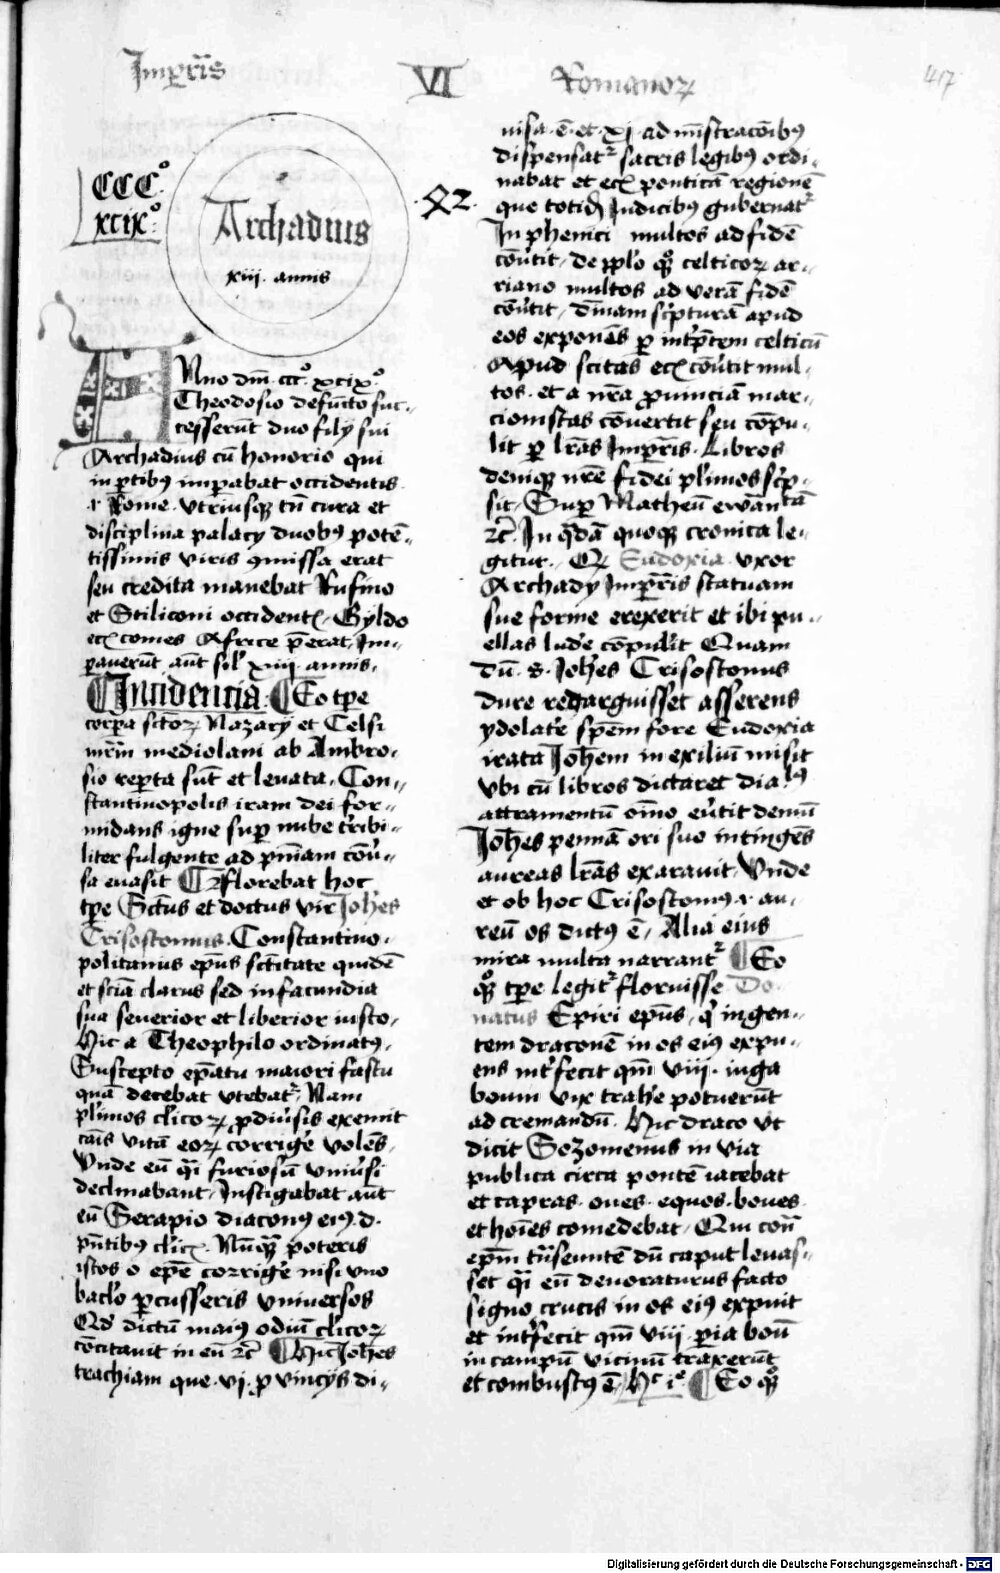 Imꝑr̄is VI Romanoꝝ 417
CCC°
xcix°
Archadius
xiii · annis
·42·
Anno dm̄ · ccc° · xcix°
Theodosio defūcto suc-
cesserūt duo filij sui
Archadius cū honorio qui
in ꝑtibꝰ imꝑabat occidentis
· Rome · vtriusqꝫ tn̄ cura et
disciplina palacij duobꝰ potē-
tissimis viris ꝯmissa erat
seu credita manebat Rufino
et Stiliconi occident̄ · Gyldo
ec̄ comes Africe p̄erat · Im-
ꝑauerūt aūt sil̓ xiiij · annis ·
¶ Incidencia · ¶ Eo tꝑe
corꝑa sc̄toꝝ Nazarij et Celsi
mr̄m̄ mediolani ab Ambro-
sio reꝑta sūt et leuata · Con-
stantinopolis iram dei for-
midans igne suꝑ nube t̓ribi-
liter fulgente ad pn̄iam cōu̓-
sa euasit ¶ Florebat hoc
tꝑe Sc̄tus et doctus vir Ioh̄es
Crisostomus · Constantino-
politanus ep̄us sc̄titate quidē
et sc̄ia clarus sed in facundia
sua seuerior et liberior iusto ·
Hic a Theophilo ordinatꝰ ·
Suscepto ep̄atu maiori fastu
quā decebat vtebatᷣ · Nam
pl̓imos cl̓icoꝝ ꝓ diu̓sis exemit
cāis vitā eoꝝ corrige̓ volēs ·
Vnde eū q̄i furiosū vniu̓si
declinabant · Instigabat aūt
eū Serapio diaconꝰ eiꝰ · d ·
pn̄tibꝰ cl̓ic̄ · Nūqꝫ poteris
istos o ep̄e corrige̓ nisi vno
bacl̓o ꝑcusseris vniuersos
Qd̓ dictū maiꝰ odiū cl̓icoꝝ
cōcitauit in eū ⁊c̄ ¶ Hic Ioh̄es
trachiam que · vj · ꝓvincijs di-
uisa · ē · et · xj · ad mīstracōibꝰ
dispensatᷣ sacris legibꝰ ordi-
nabat et ec̄ ponticā regionē
que totid̄ Iudicibꝰ gubernatᷣ
In phenici multos ad fidē
cōu̓tit · de ppl̓o qꝫ celticoꝝ ar-
riano multos ad verā fidē
cōu̓tit · diuinam sc̓pturā apud
eos exponēs ꝑ int̓p̄tem celticū
Apud scitas ec̄ cōu̓tit mul-
tos · et a nr̄a ꝓuinciā mar-
cionistas cōuertit seu cōpu-
lit ꝑ lr̄as Imꝑr̄is · Libros
deniqꝫ nr̄e fidei pl̓imos sc̓p-
sit · Suꝑ Matheū ewān tā
⁊c̄ · In q̄dā quoqꝫ cronica le-
gitur · Qꝫ Eudoxia vxor
Archadij Imꝑr̄is statuam
sue forme erexerit et ibi pu-
ellas lude̓ cōpulit Quam
dū · s · Ioh̄es Crisostomus
dure redarguisset asserens
ydolat̓e spēm fore Eudoxia
irata Ioh̄em in exiliū misit
Vbi cū libros dictaret diabꝰ
attramentū oīno eu̓tit demū
Ioh̄es pennā ori suo intingēs
aureas lr̄as exarauit · Vnde
et ob hoc Crisostomꝰ · i · au-
reū os dictꝰ ē · Alia eius
mira multa narrantᷣ ¶ Eo
qꝫ tꝑe legitᷣ floruisse Do-
natus Epiri ep̄us · q̓ ingen-
tem draconē in os eiꝰ expu-
ens int̓fecit qm̄ viii · iuga
boum vix trahe̓ potuerūt
ad cremandū · Hic draco vt
dicit Sozomenus in via
publica circa pontē iacebat
et capras · oues · equos · boues ·
et hoīes comedebat · Qui con̄
ep̄m t̄nseuntē dū caput leuas-
set q̄i eū deuoraturus facto
signo crucis in os eiꝰ expuit
et int̓fecit qm̄ viii · ꝑia boū
in campū vicinū traxerūt
et combustꝰ ē · Hᶜ iᵉ · ¶ Eo qꝫ
Digitalisierung gefördert durch die Deutsche Forschungsgemeinschaft - DFG